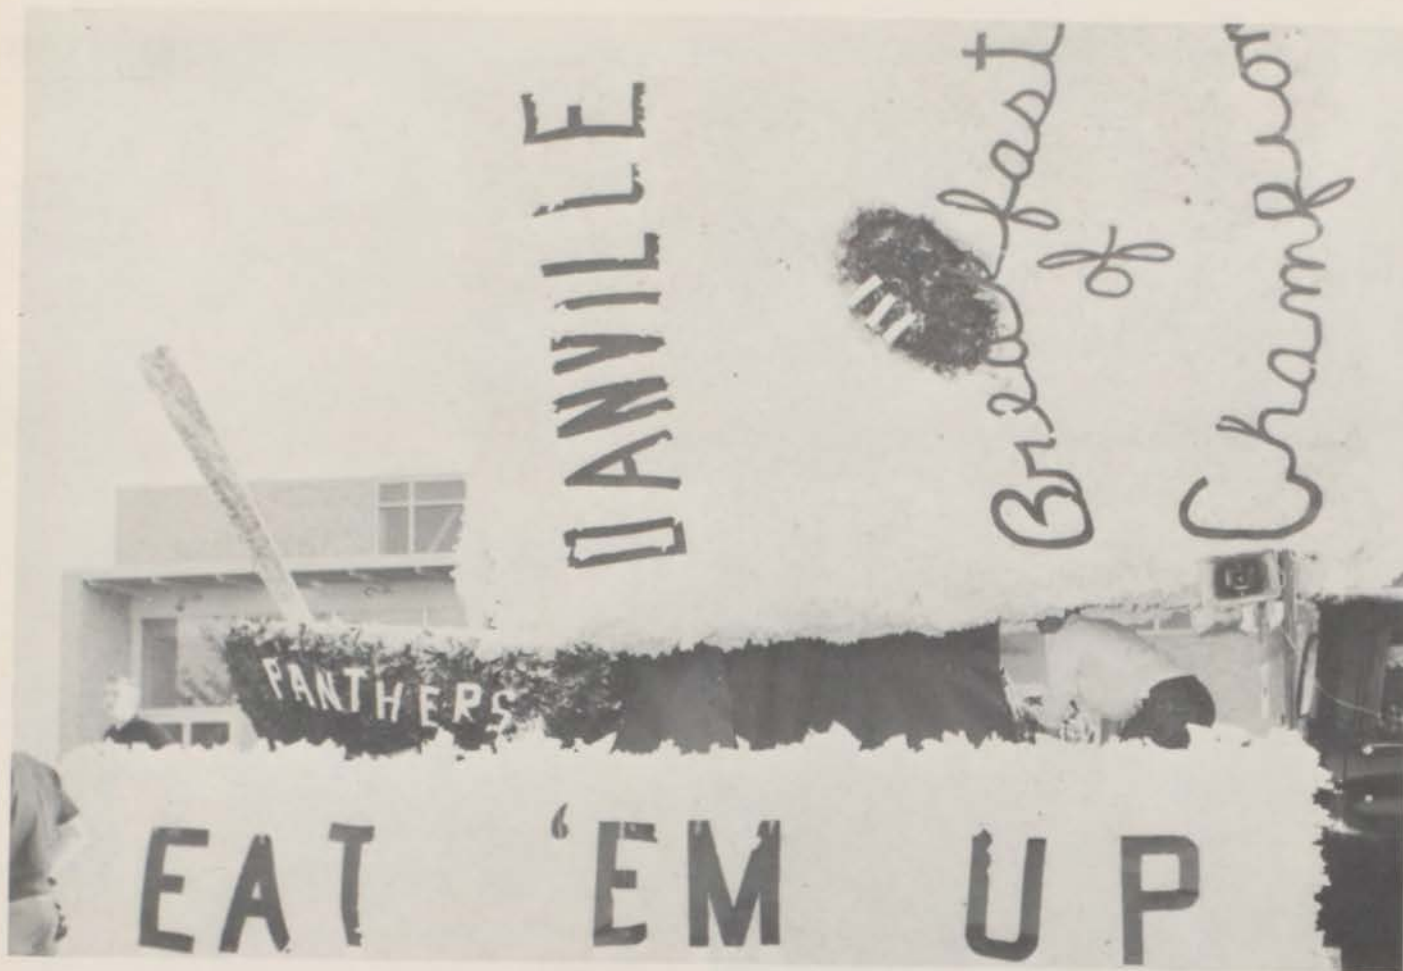 DANVILLE
Breakfast
of
PANTHERS
EAT 'EM UP